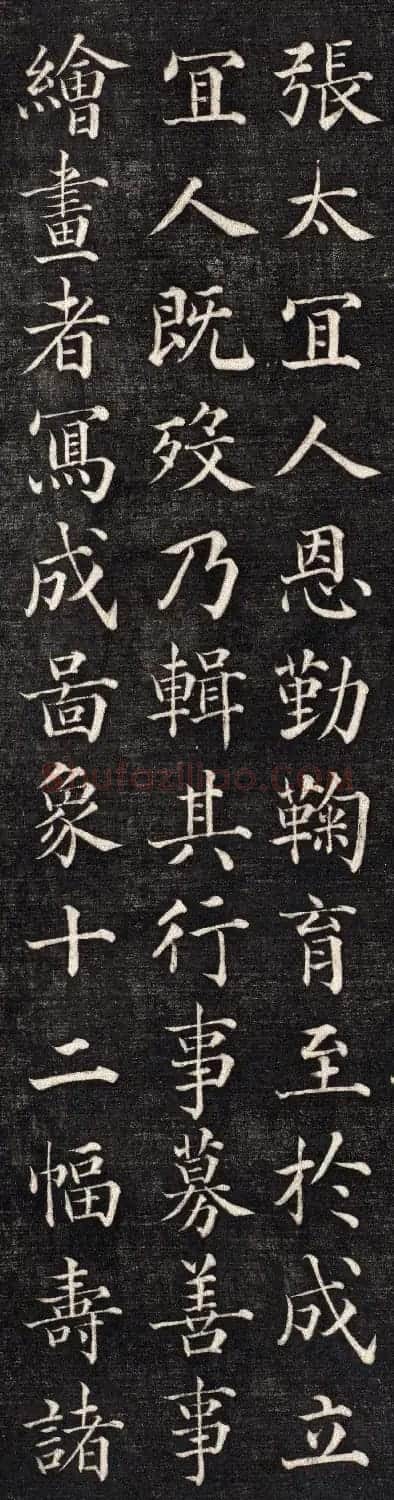 張太宜人恩勤鞠育至於成立
宜人既歿乃輯其行事募善事
繪畫者寫成啚象十二幅壽諸
shufaziliao.com